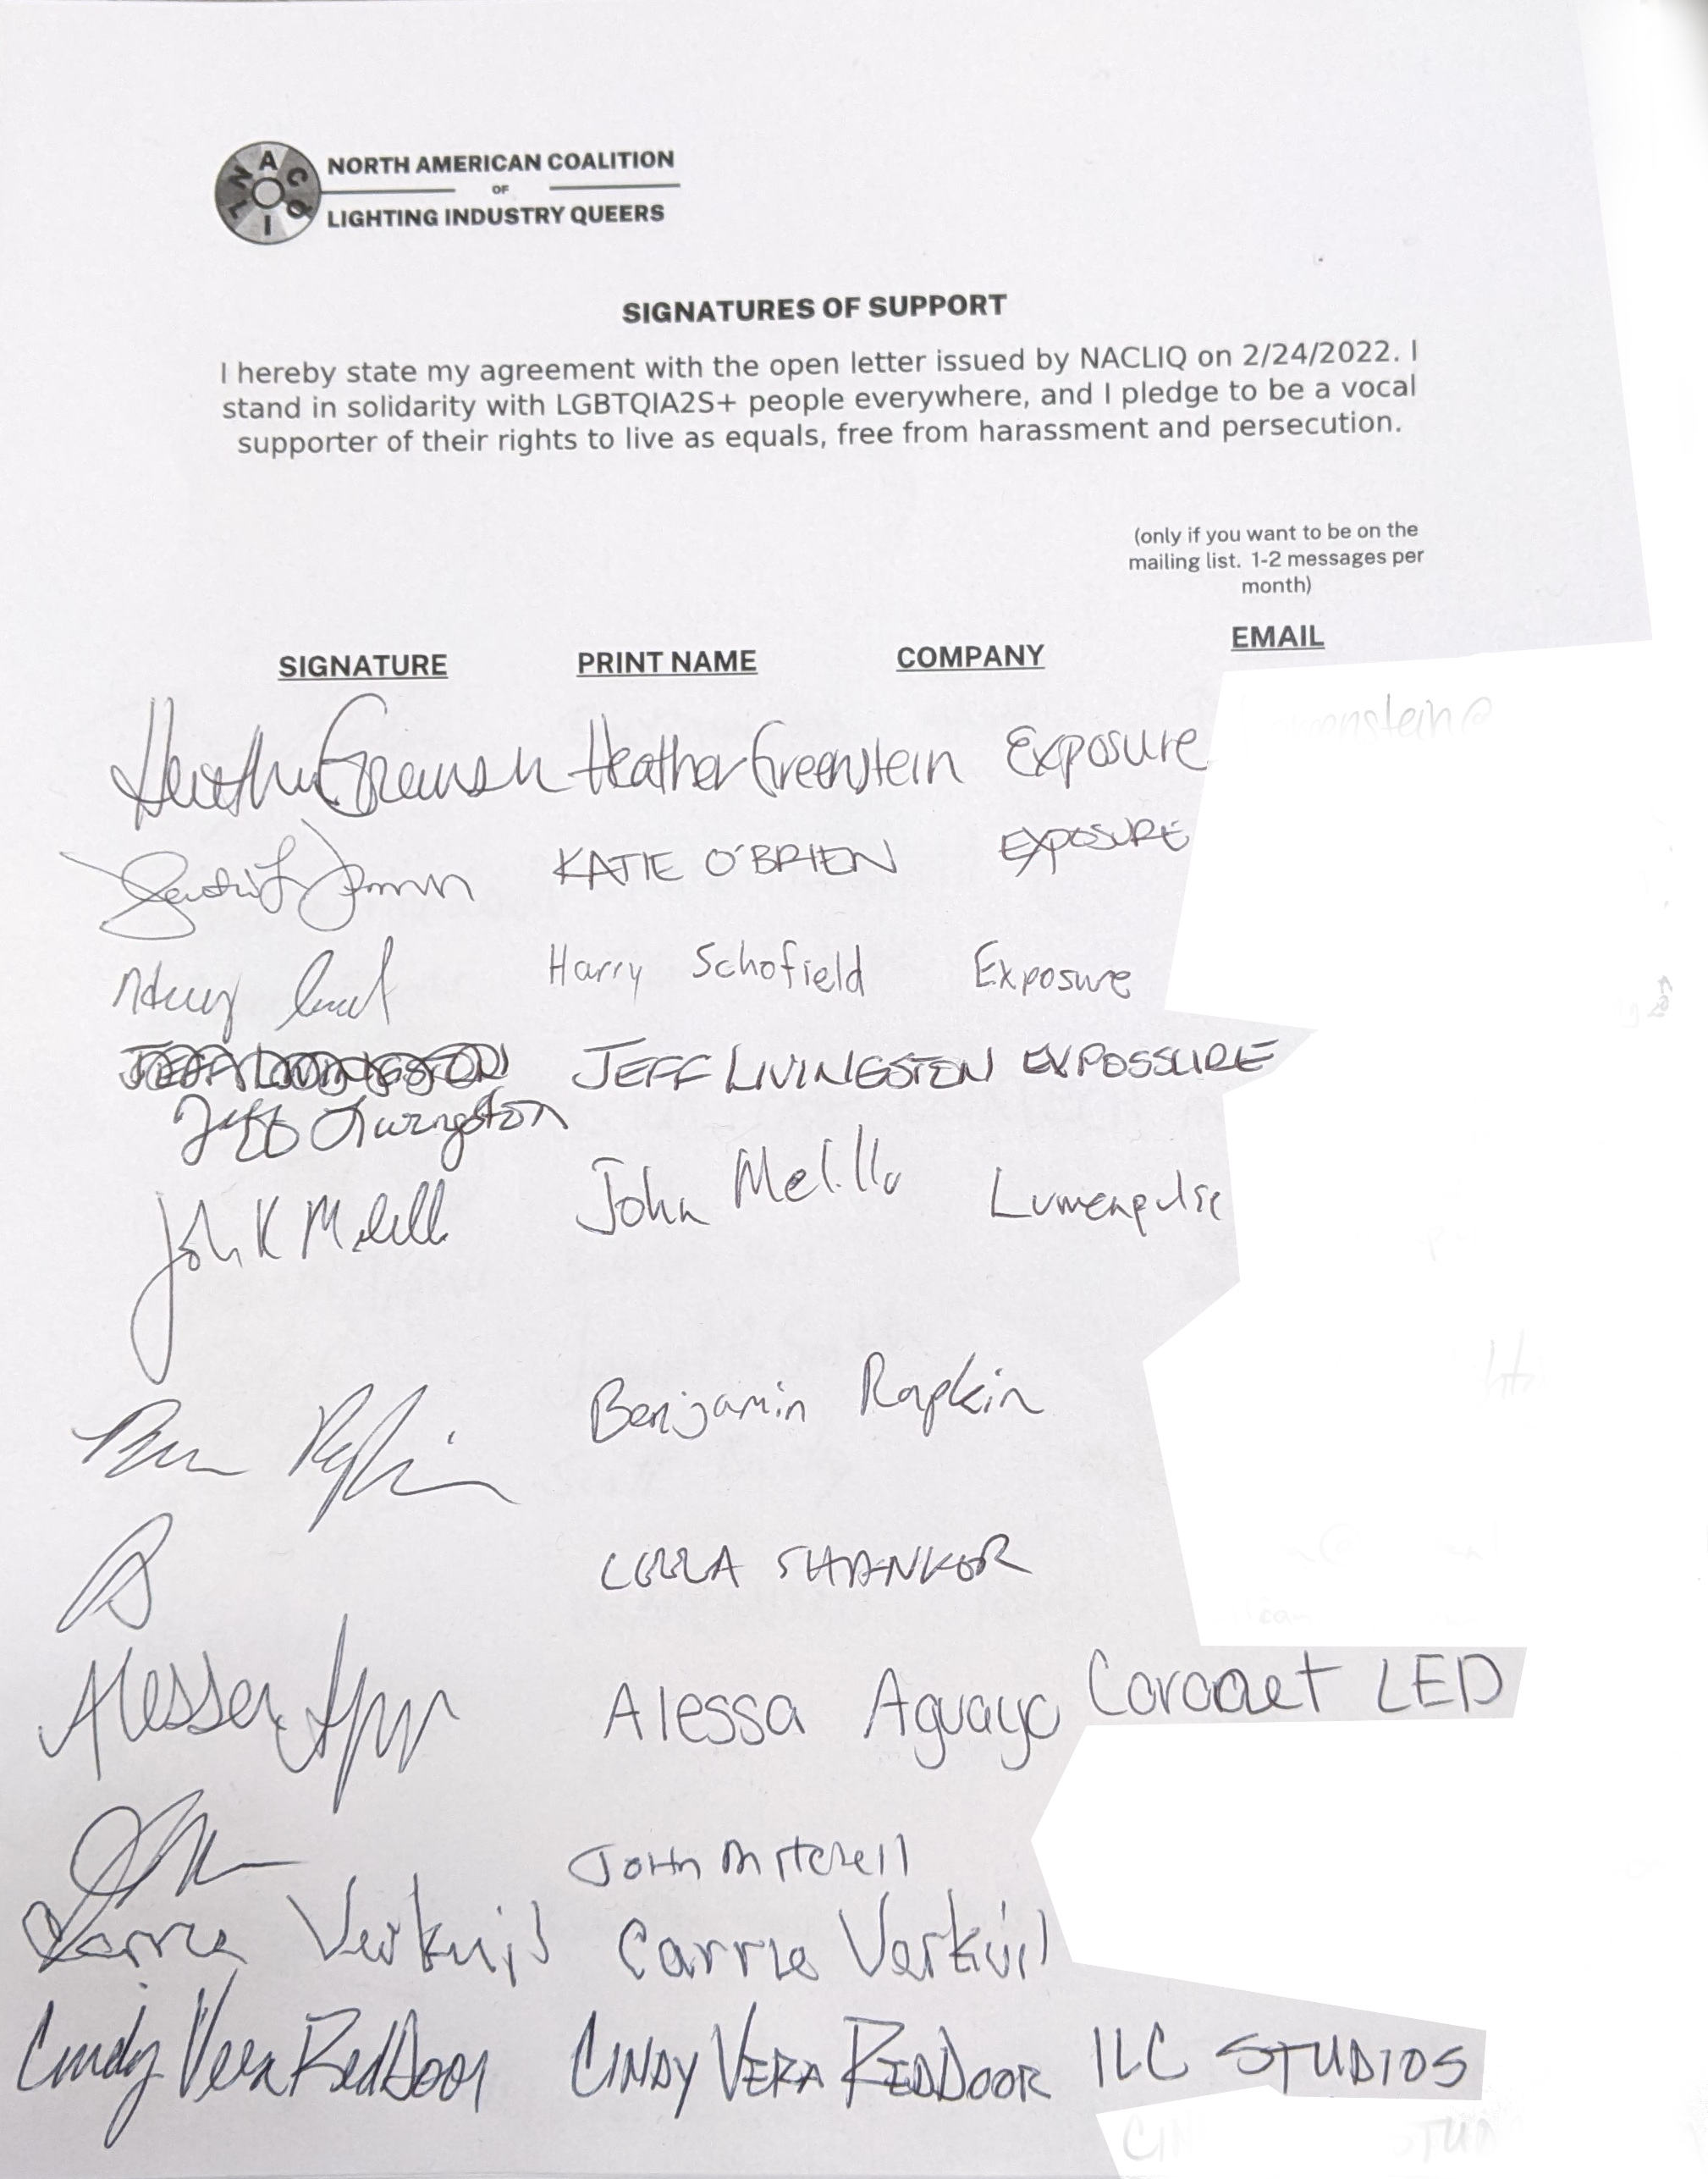 NACLIQ
NORTH AMERICAN COALITION
OF
LIGHTING INDUSTRY QUEERS
SIGNATURES OF SUPPORT
I hereby state my agreement with the open letter issued by NACLIQ on 2/24/2022. I
stand in solidarity with LGBTQIA2S+ people everywhere, and I pledge to be a vocal
supporter of their rights to live as equals, free from harassment and persecution.
(only if you want to be on the
mailing list. 1-2 messages per
month)
SIGNATURE PRINT NAME COMPANY EMAIL
Heather Greenstein Exposure
KATIE O'BRIEN EXPOSURE
Harry Schofield Exposure
JEFF LIVINGSTON JEFF LIVINGSTON EXPOSSURE
Jeff Livingston
John K Melillo John Melillo Lumenpulse
Benjamin Rapkin
SHANKOR
Alessa Alessa Aguayo Coronet LED
John Mitchell
Carrie Verkuil Carrie Verkuil
Cindy Vera RedDoor CINDY VERA REDDOOR ILC STUDIOS